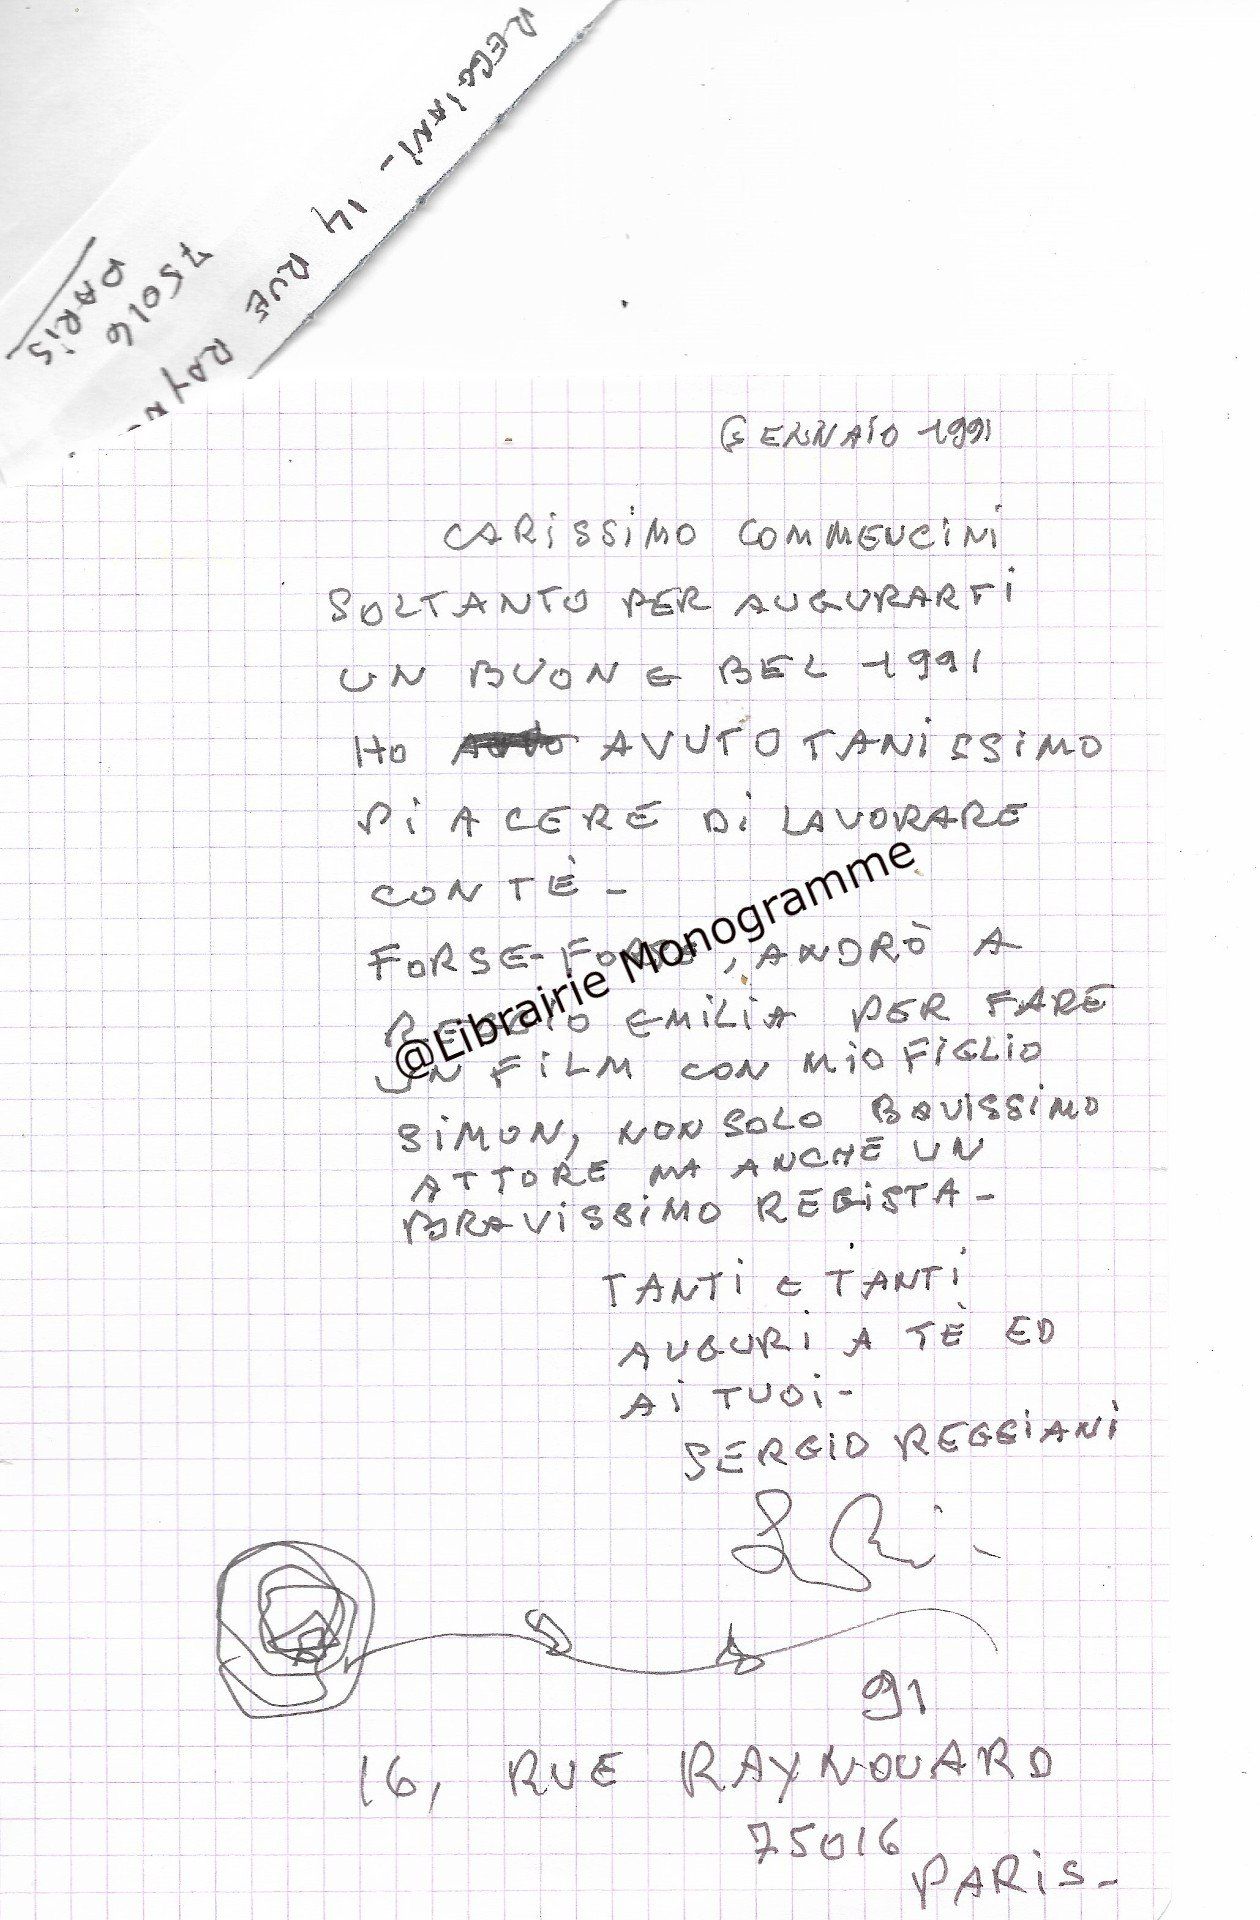 REGGIANI - 14 RUE RAYN
75016
PARIS
GENNAIO 1991
CARISSIMO COMMENCINI
SOLTANTO PER AUGURARTI
UN BUON E BEL 1991
HO AVUTO TANISSIMO
PIACERE DI LAVORARE
CON TÈ -
FORSE-FORSE, ANDRÒ A
REGGIO EMILIA PER FARE
UN FILM CON MIO FIGLIO
SIMON, NON SOLO BAVISSIMO
ATTORE MA ANCHE UN
BRAVISSIMO REGISTA -
TANTI E TANTI
AUGURI A TÈ ED
AI TUOI -
SERGIO REGGIANI
91
16, RUE RAYNOUARD
75016
PARIS -
@Librairie Monogramme